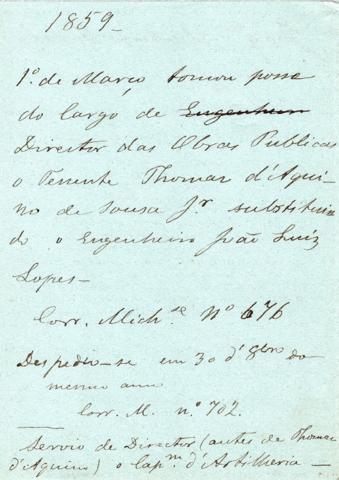 1859_
1.º de Março tomou posse
do Cargo de Engenheiro
Director das Obras Publicas
o Tenente Thomaz d'Aqui-
no de Sousa Jr substituin
do o Engenheiro João Luiz
Lopes_
Corr. Mich.se Nº 676
Despedio-se em 30 d'8bro do
mesmo anno
Corr. M. n.º 702.
Servio de Director (antes de Thomaz
d'Aquino) o Capm. d'Artilheria_